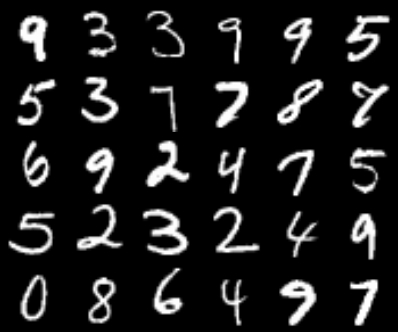 9 3 3 9 9 5
5 3 7 7 8 7
6 9 2 4 7 5
5 2 3 2 4 9
0 8 6 4 9 7